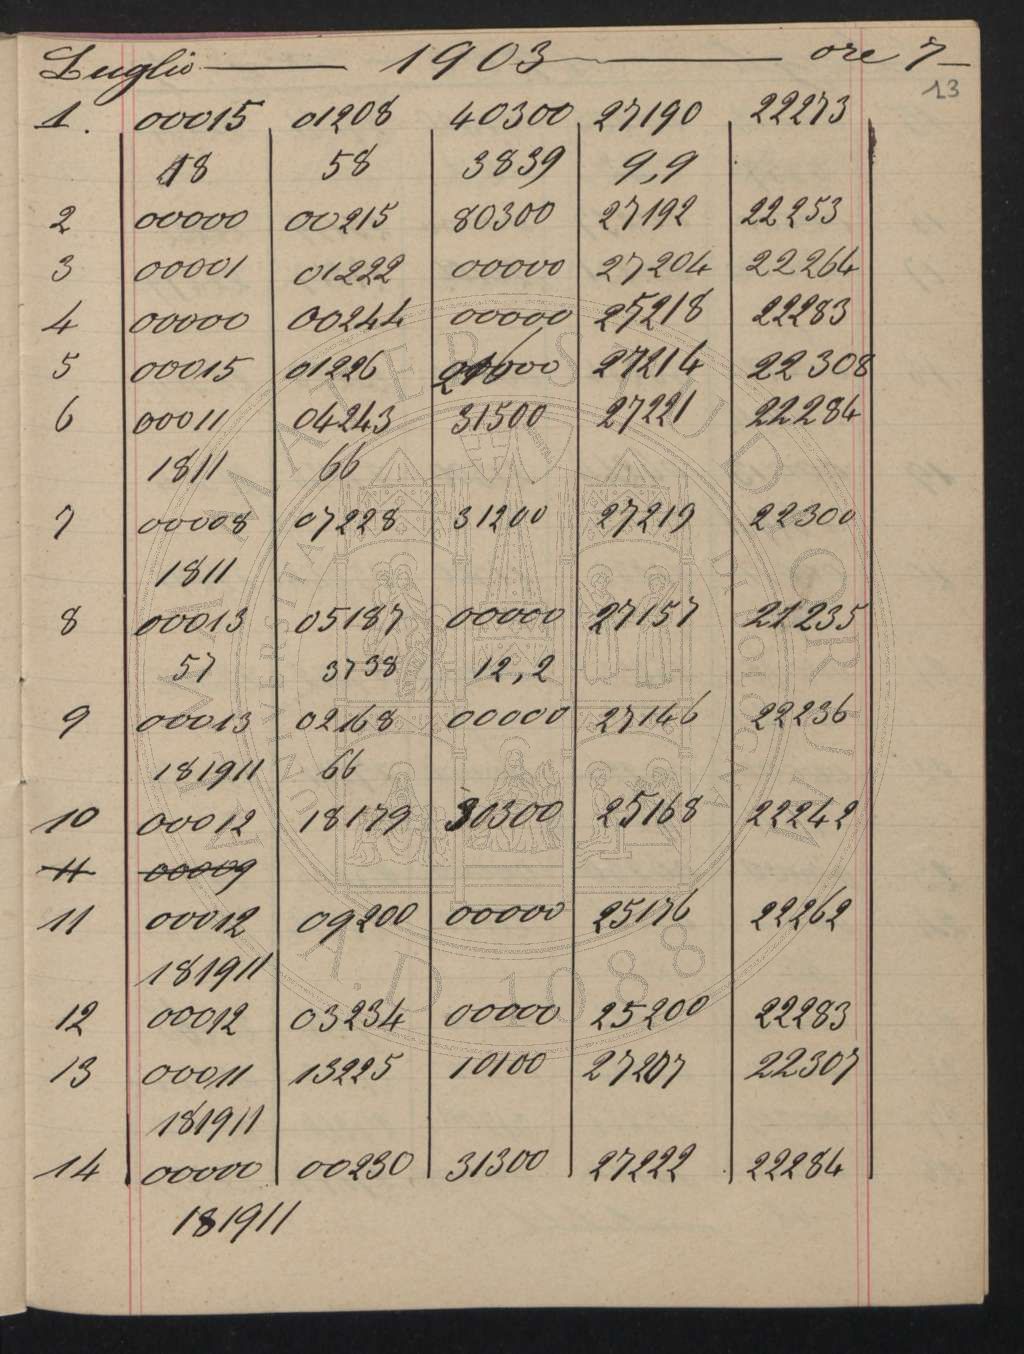 Luglio 1903 ore 7
13
1. 00015 01208 40300 27190 22273
18 58 3839 9,9
2 00000 00215 80300 27192 22253
3 00001 01222 00000 27204 22264
4 00000 00244 00000 25218 22283
5 00015 01226 27214 22308
6 00011 04243 31500 27221 22284
1811 66
7 00008 07228 31200 27219 22300
1811
8 00013 05187 00000 27157 21235
57 3738 12,2
9 00013 02168 00000 27146 22236
181911 66
10 00012 18179 30300 25168 22242
11 00009
11 00012 09200 00000 25176 22262
181911
12 00012 03234 00000 25200 22283
13 00011 13225 10100 27207 22307
181911
14 00000 00230 31300 27222 22284
181911
ALMA MATER STUDIORUM
UNIVERSITÀ DI BOLOGNA
A.D. 1088